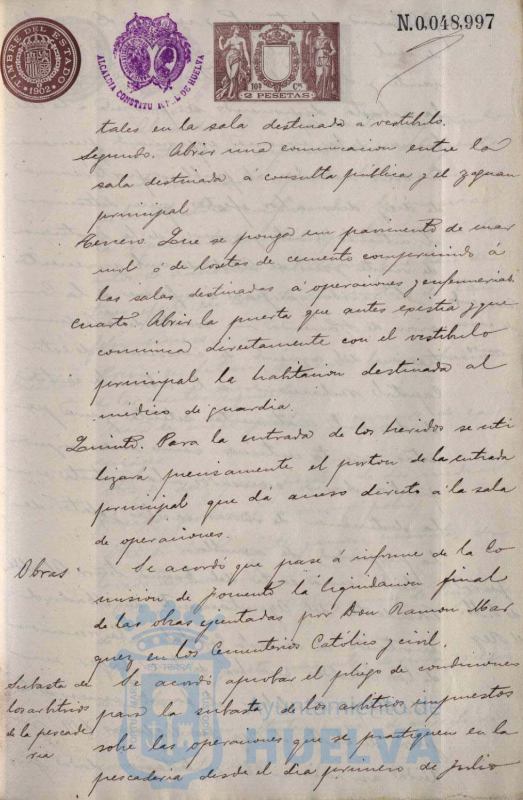 N.0.048,997
TIMBRE DEL ESTADO
1902
ALCALDIA CONSTITUCIONAL DE HUELVA
100 Cs
2 PESETAS
tales en la sala destinada a vestíbulo.
Segundo. Abrir una comunicacion entre la
sala destinada á consulta pública y el zaguan
principal
Tercero. Que se ponga un pavimento de mar
mol ó de losetas de cemento comprimido á
las salas destinadas á operaciones y enfermerias.
Cuarto Abrir la puerta que antes existia y que
comunica directamente con el vestíbulo
principal la habitacion destinada al
médico de guardia.
Quinto. Para la entrada de los heridos se uti
lizará precisamente el porton de la entrada
principal que dá acceso directo á la sala
de operaciones.
Obras
Se acordó que pase á informe de la Co
mision de fomento la liquidacion final
de las obras ejecutadas por Don Ramon Mar
quez en los Cementerios Católico y civil.
Subasta de
los arbitrios
de la pescade
ria
Se acordó aprobar el pliego de condiciones
para la subasta de los arbitrios impuestos
sobre las operaciones que se practiquen en la
pescaderia desde el dia primero de Julio
Ayuntamiento de
HUELVA